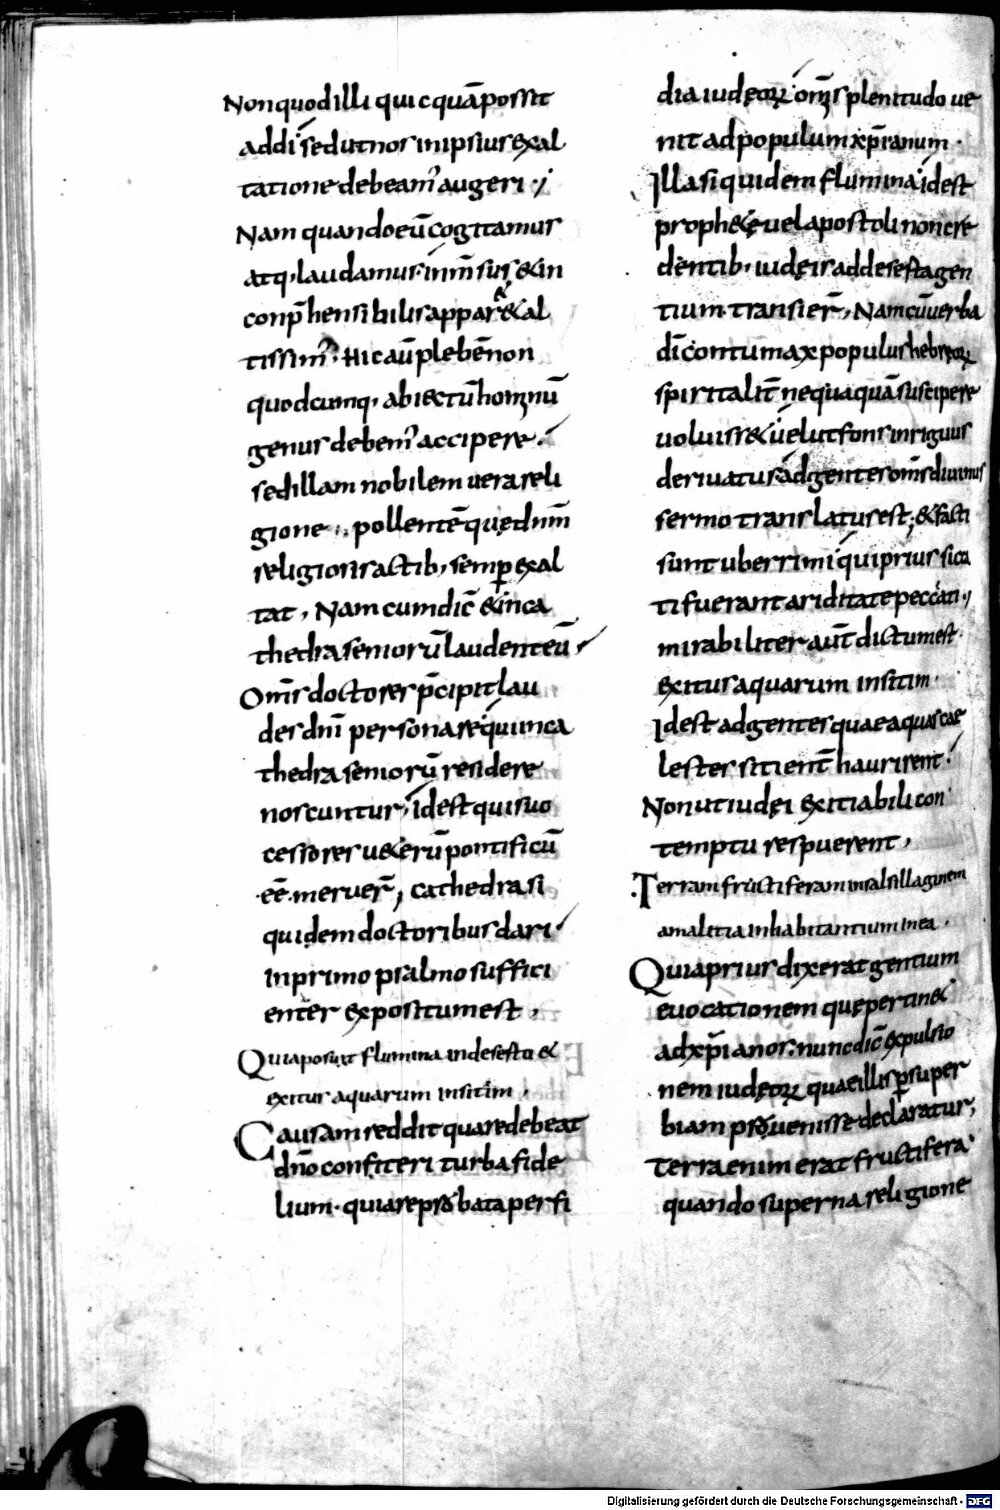 Non quod illi quicquā possit
addi sed ut nos in ipsius exal
tatione debeam' augeri ·,
Nam quando eū cogitamus
atq; laudamus inm̄sus & in
conp̄hensibilis appar& & al
tissim' . Hic aūt plebē non
quodcumq; abiectū hominū
genus debem' accipere .
sed illam nobilem uera reli
gione . pollentē quę dn̄m
religiosis actib; semp exal
tat , Nam cum dic̄ & in ca
thedra seniorū laudent eū ,
Om̄s doctores p̄cipit lau
des dn̄i personare qui in ca
thedra seniorū residere
noscuntur , idest qui suo
cessores ueterū pontificū
ēē meruer̄ , cathedra si
quidem doctoribus dari
in primo psalmo suffici
enter expositum est ,
Quia posuit flumina in deserto &
exitus aquarum in sitim ,
Causam reddit quare debeat
dn̄o confiteri turba fide
lium · quia reprobata perfi
dia iudęoꝝ om̄s plenitudo ue
nit ad populum xp̄ianum ·
Illa siquidem flumina idest
proph&ę uel apostoli non cre
dentib; iudęis ad deserta gen
tium transier̄ , Nam cū uerba
dī contumax populus hebręoꝝ
spiritalit̄ nequaquā suscipere
uoluiss& uelut fons inriguus
deriuatus ad gentes om̄s diuinus
sermo translatus est ; & facti
sunt uberrimi qui prius sica
ti fuerant ariditate peccati ·,
mirabiliter aūt dictum est
exitus aquarum in sitim ·
Idest ad gentes quae aquas cae
lestes sitient̄ haurirent .
Non ut iudęi exitiabili con
temptu respuerent ,
Terram fructiferam in salsillaginem
a malitia inhabitantium in ea .
Quia prius dixerat gentium
euocationem quę pertin&
ad xp̄ianos . nunc dic̄ expulsio
nem iudęoꝝ quae illis p super
biam prouenisse declaratur ;
Terra enim erat fructifera
quando superna religione
Digitalisierung gefördert durch die Deutsche Forschungsgemeinschaft - DFG